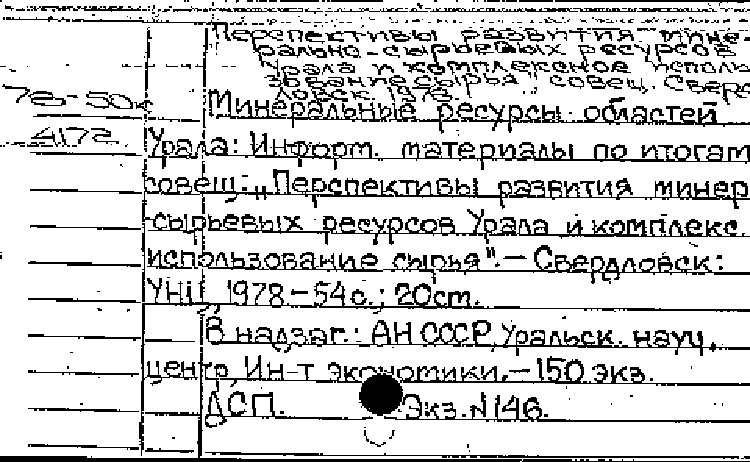 Перспективы развития мине-
рально-сырьевых ресурсов
Урала и комплексное исполь
зование сырья, совещ. Сверд
ловск 1978.
78-50к Минеральные ресурсы областей
4172 Урала: Информ. материалы по итогам
совещ. „Перспективы развития минер
-сырьевых ресурсов Урала и комплекс.
использование сырья". – Свердловск:
УНЦ, 1978 – 54 с.; 20 см.
В надзаг.: АН СССР, Уральск. науч.
центр, Ин-т экономики. – 150 экз.
ДСП. Экз. N 146.